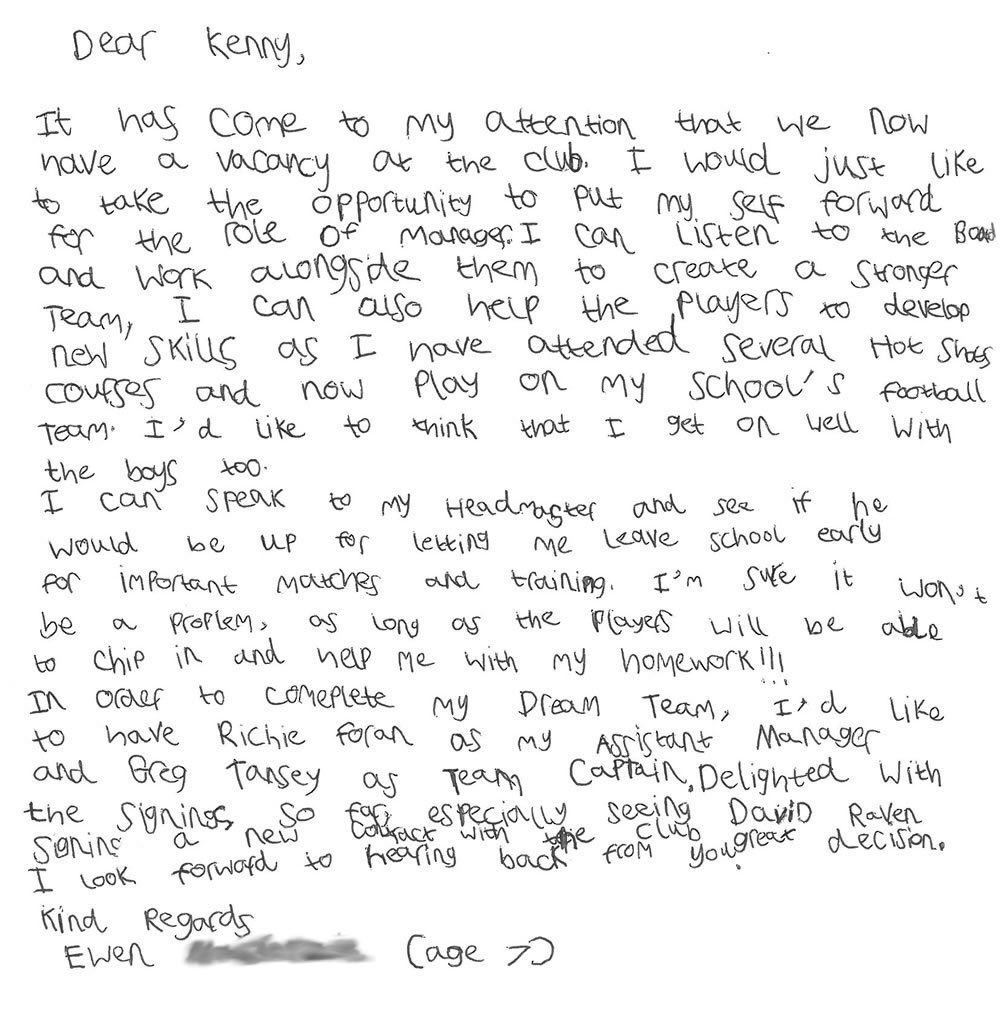 Dear Kenny,
It has come to my attention that we now
have a vacancy at the club. I would just like
to take the opportunity to put my self forward
for the role of Manager. I can Listen to the Board
and work alongside them to create a stronger
Team, I can also help the players to develop
new skills as I have attended several Hot Shots
courses and now play on my school's football
Team. I'd like to think that I get on well with
the boys too.
I can speak to my Headmaster and see if he
would be up for letting me leave school early
for important matches and training. I'm sure it won't
be a proplem, as long as the players will be able
to chip in and help me with my homework!!!
In order to comeplete my Dream Team, I'd like
to have Richie Foran as my Assistant Manager
and Greg Tansey as Team Captain. Delighted with
the signings so far, especially seeing David Raven
signing a new contract with the club great decision.
I look forward to hearing back from you.
Kind Regards
Ewen (age 7)